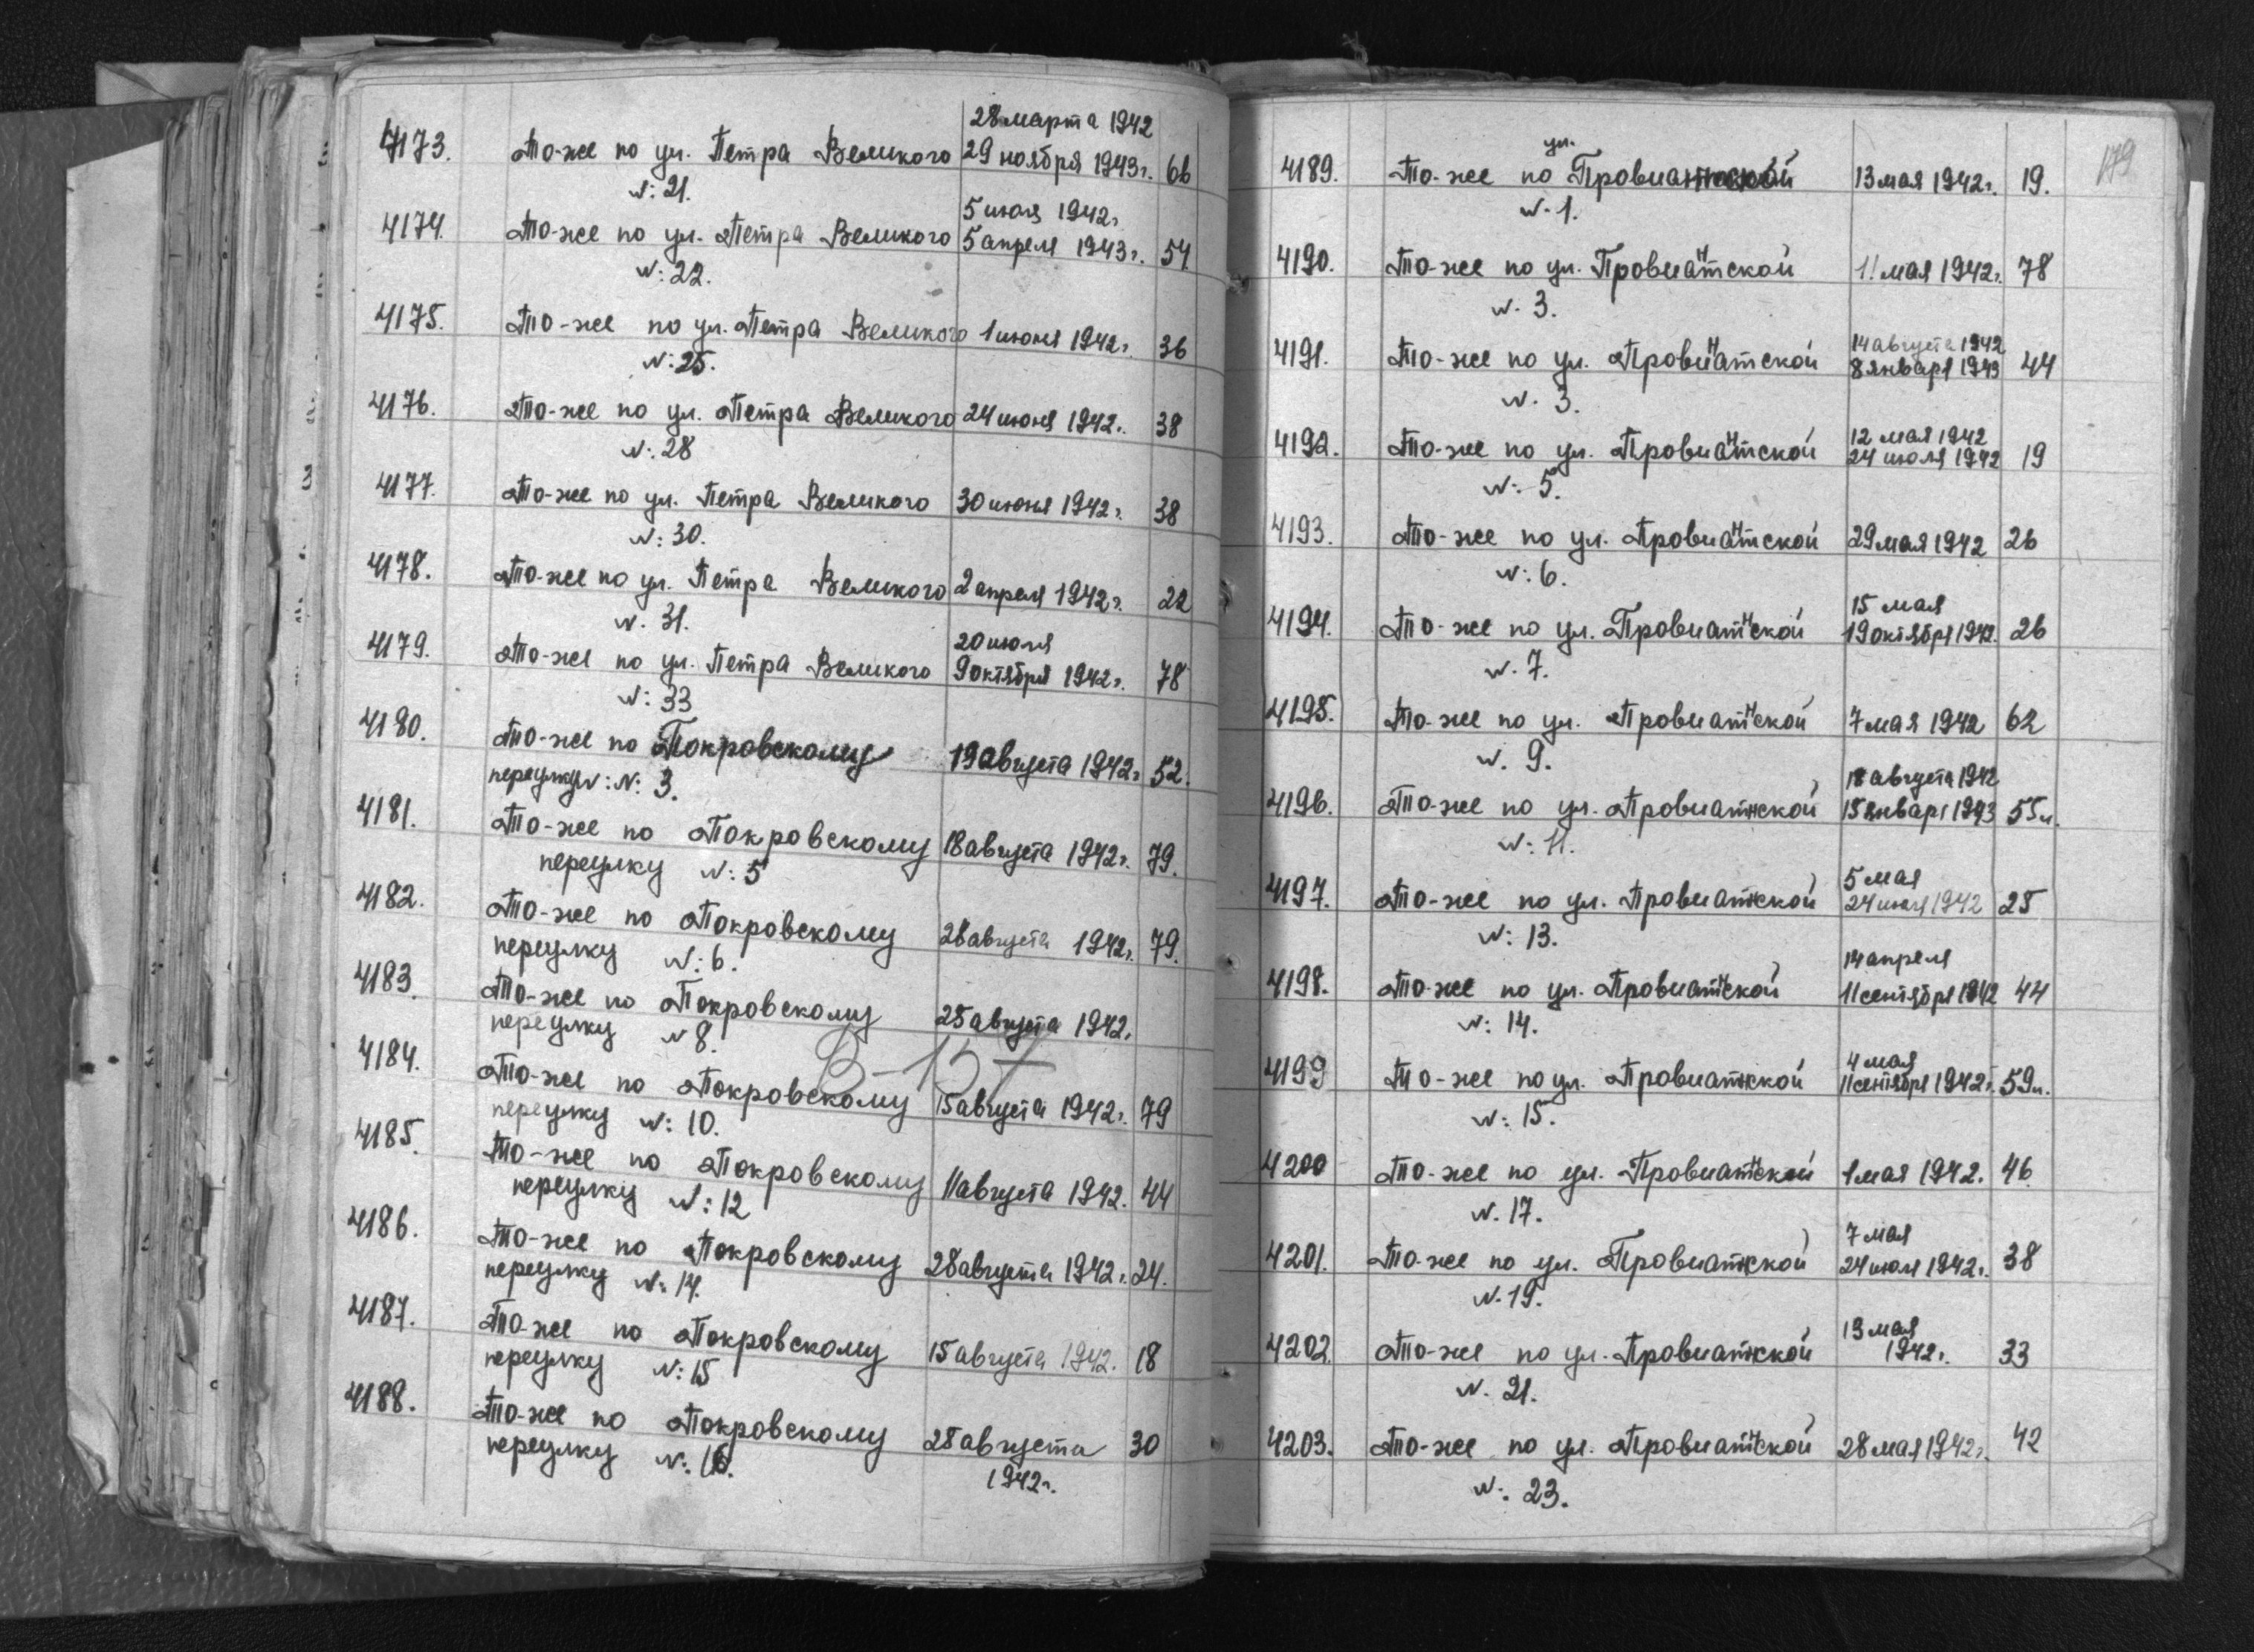 28 марта 1942
4173. То-же по ул. Петра Великого 29 ноября 1943г. 66
N: 21.
5 июля 1942г
4174. То-же по ул. Петра Великого 5 апреля 1943г. 54
N: 22.
4175. То-же по ул. Петра Великого 1 июня 1942г. 36
N: 25.
4176. То-же по ул. Петра Великого 24 июня 1942г. 38
N: 28
4177. То-же по ул. Петра Великого 30 июня 1942г. 38
N: 30.
4178. То-же по ул. Петра Великого 2 апреля 1942г. 22
N. 31.
20 июля
4179. То-же по ул. Петра Великого 9 октября 1942г. 78
N: 33
4180. То-же по Покровскому 19 августа 1942г. 52.
переулку N: N: 3.
4181. То-же по Покровскому 18 августа 1942г. 79.
переулку N: 5
4182. То-же по Покровскому 28 августа 1942г. 79.
переулку N: 6.
4183. То-же по Покровскому 25 августа 1942г.
переулку N 8.
В-157
4184. То-же по Покровскому 15 августа 1942г. 79
переулку N: 10.
4185. То-же по Покровскому 11 августа 1942. 44
переулку N: 12
4186. То-же по Покровскому 28 августа 1942г. 24.
переулку N: 14.
4187. То-же по Покровскому 15 августа 1942. 18
переулку N: 15
4188. То-же по Покровскому 28 августа 30
переулку N: 16. 1942г.
179
ул.
4189. То-же по Провиантской 13 мая 1942г. 19.
N. 1.
4190. То-же по ул. Провиантской 11 мая 1942г. 78
N. 3.
14 августа 1942
4191. То-же по ул. Провиантской 8 января 1943 44
N. 3.
12 мая 1942
4192. То-же по ул. Провиантской 24 июля 1942 19
N: 5.
4193. То-же по ул. Провиантской 29 мая 1942 26
N: 6.
15 мая
4194. То-же по ул. Провиантской 19 октября 1942. 26
N. 7.
4195. То-же по ул. Провиантской 7 мая 1942 62
N. 9.
18 августа 1942
4196. То-же по ул. Провиантской 15 января 1943 55л.
N: 11.
5 мая
4197. То-же по ул. Провиантской 24 июля 1942 25
N: 13.
14 апреля
4198. То-же по ул. Провиантской 11 сентября 1942 44
N: 14.
4 мая
4199 То-же по ул. Провиантской 11 сентября 1942г. 59л.
N: 15.
4200 То-же по ул. Провиантской 1 мая 1942. 46
N. 17.
7 мая
4201. То-же по ул. Провиантской 24 июля 1942г. 38
N. 19.
19 мая
4202. То-же по ул. Провиантской 1942г. 33
N. 21.
4203. То-же по ул. Провиантской 28 мая 1942г. 42
N: 23.